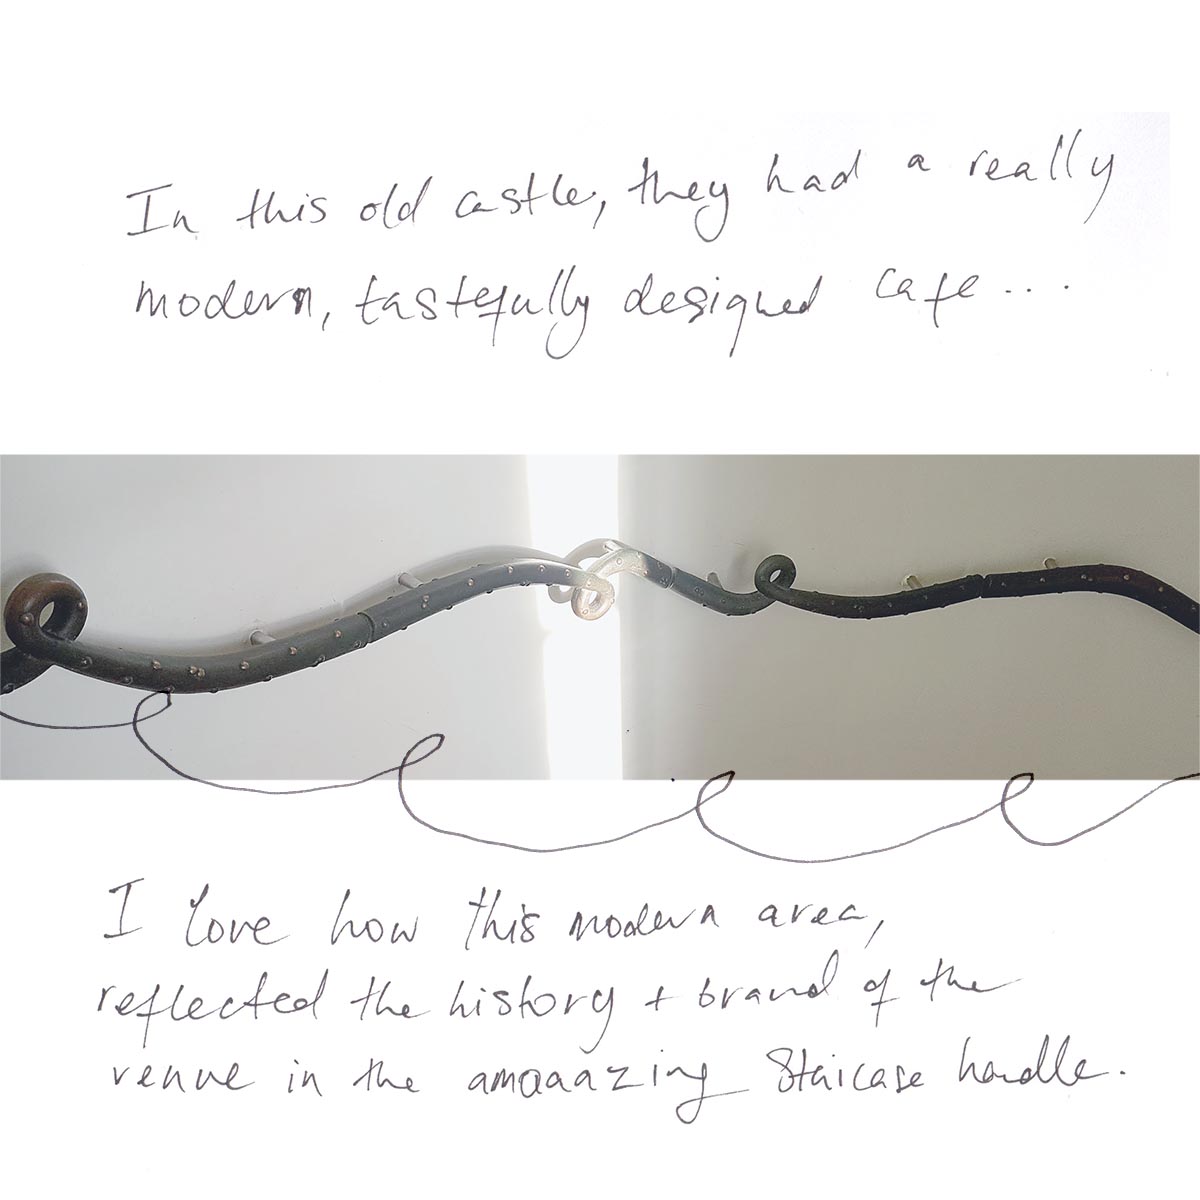 In this old castle, they had a really
modern, tastefully designed cafe...
I love how this modern area,
reflected the history + brand of the
venue in the amaaazing Staicase handle.